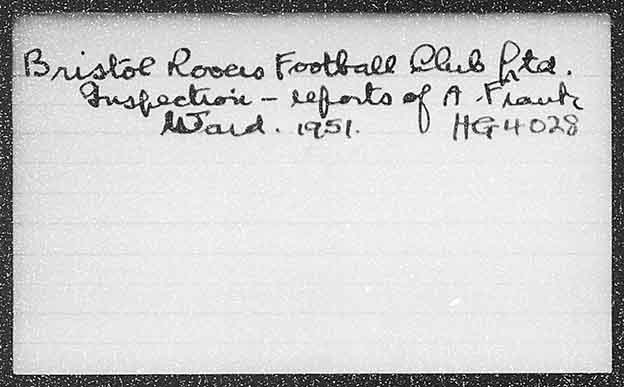 Bristol Rovers Football Club Ltd.
Inspection - reports of A. Frank
Ward. 1951. HG4028